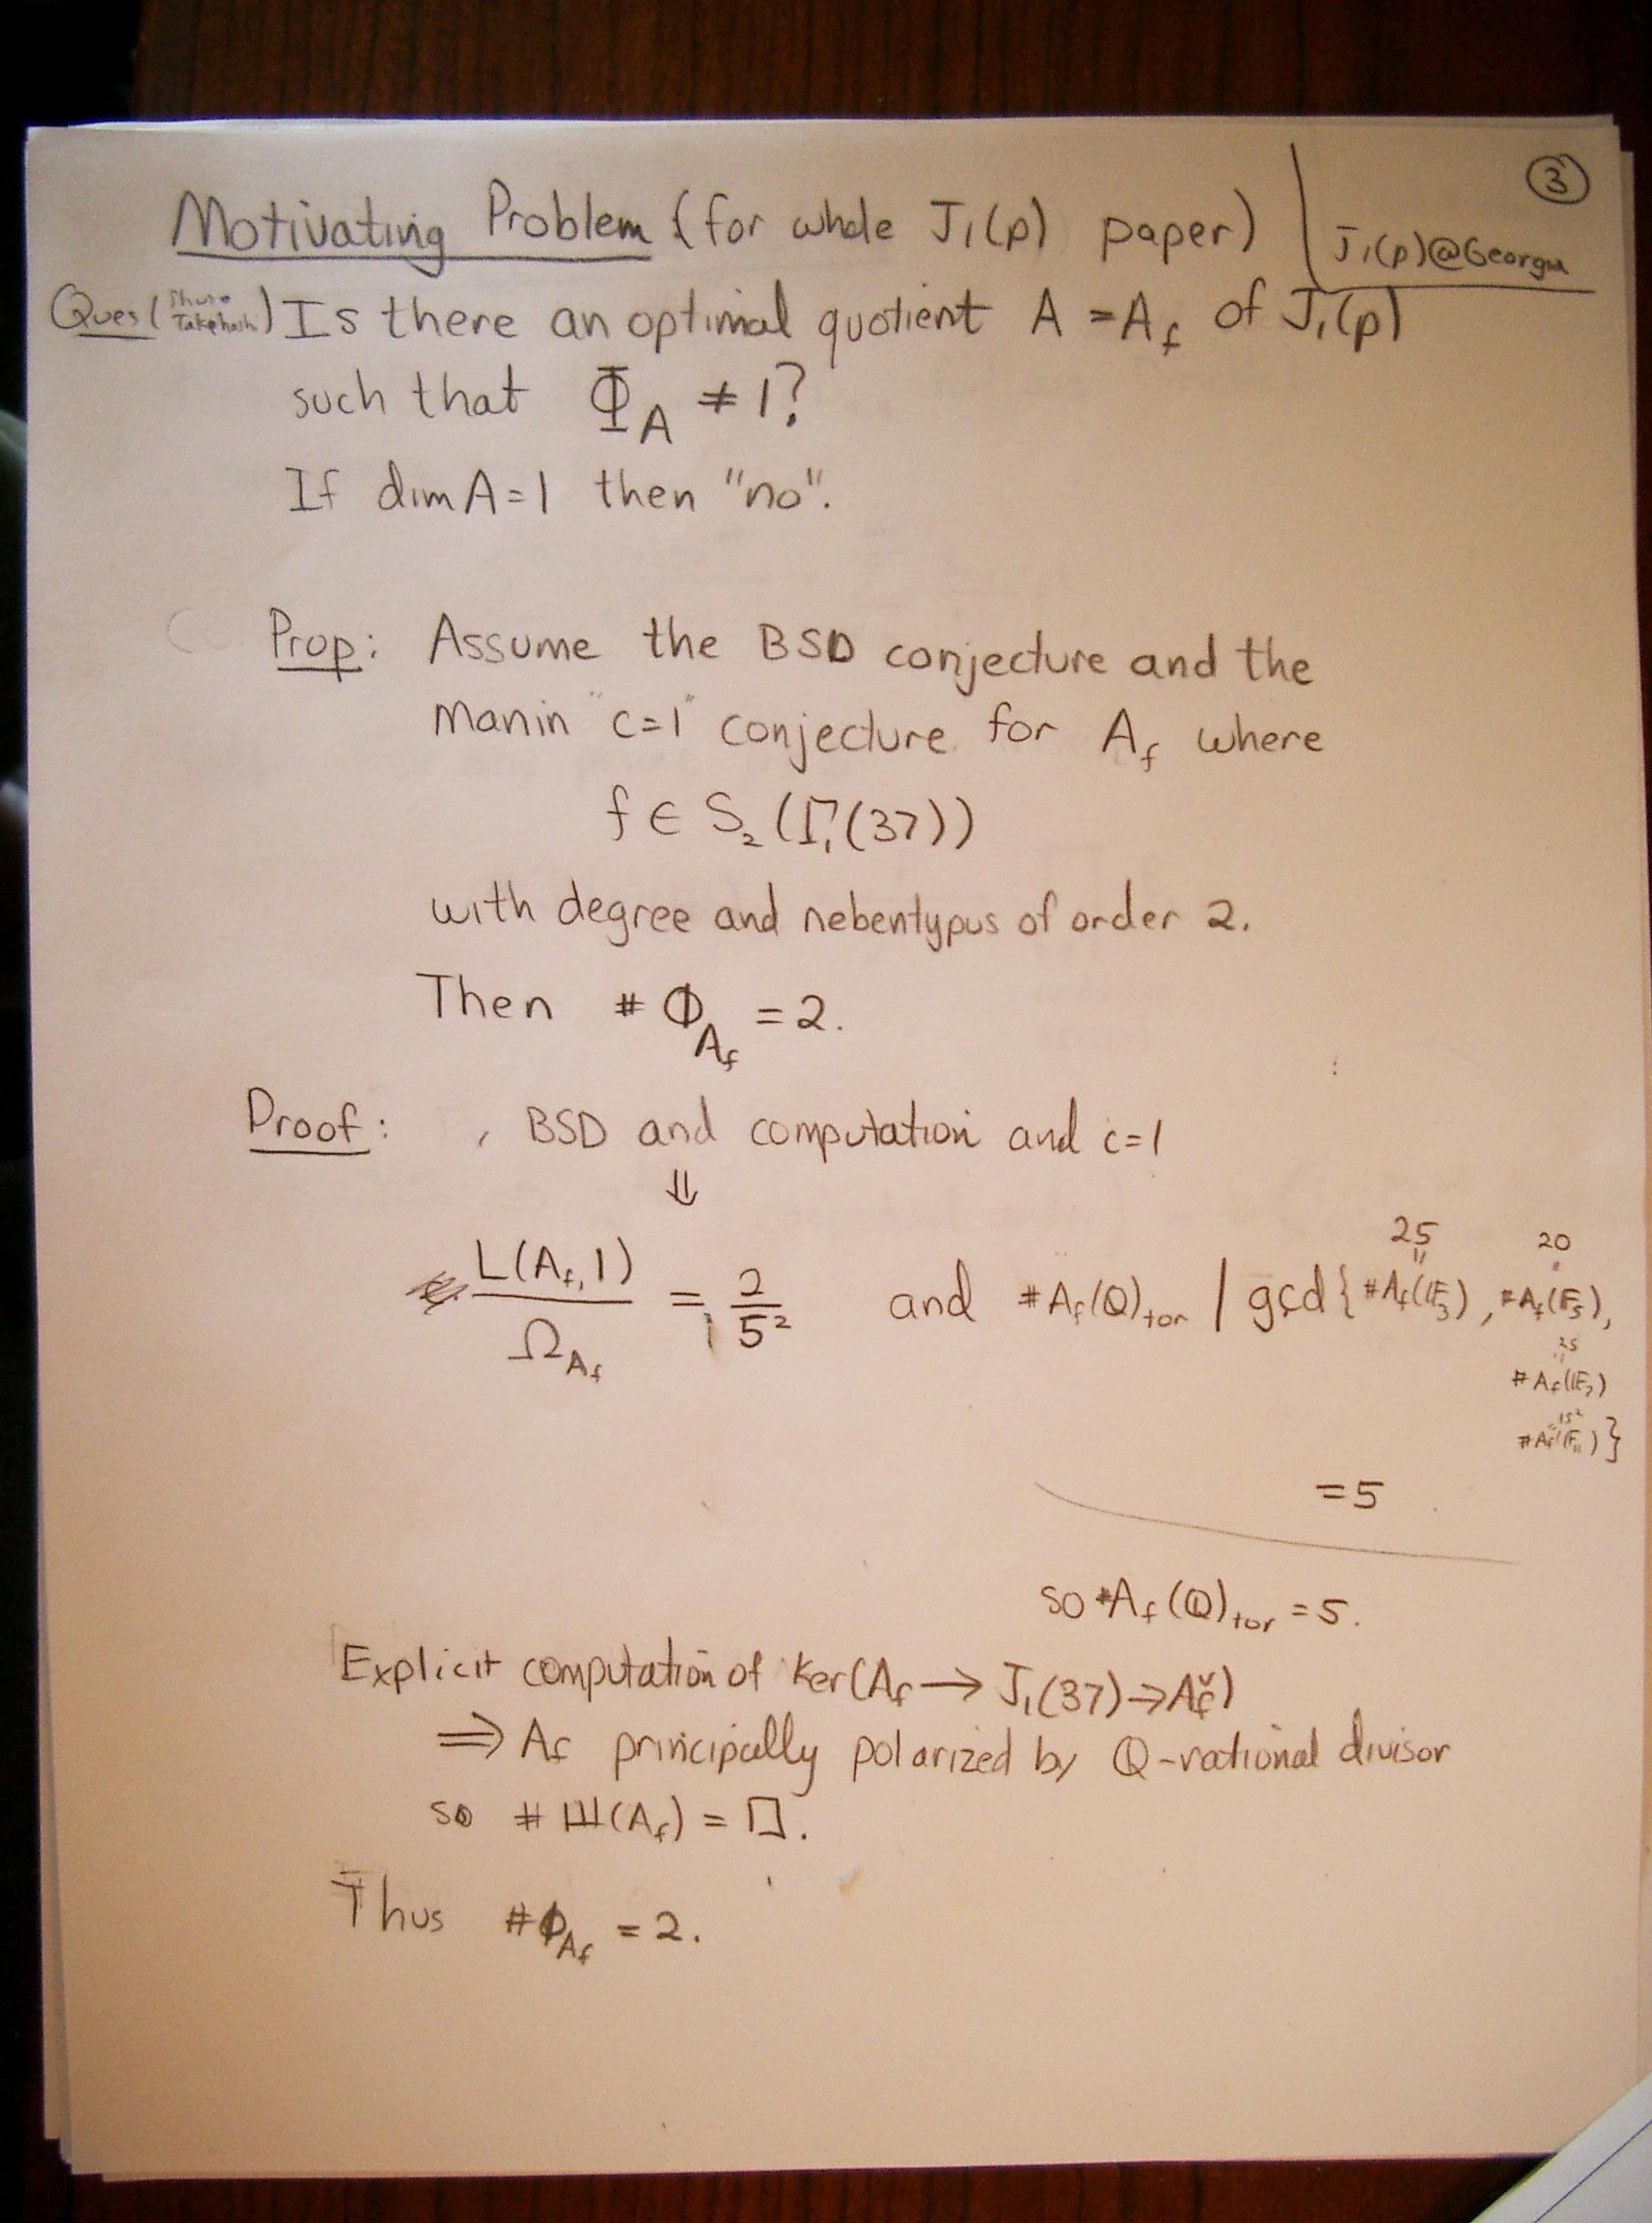 ③
Motivating Problem (for whole J₁(p) paper)
J₁(p)@Georgia
Ques (Shuzo Takehashi) Is there an optimal quotient A = A_f of J₁(p)
such that Φ_A ≠ 1?
If dim A = 1 then "no".
Prop: Assume the BSD conjecture and the
Manin "c=1" conjecture for A_f where
f ∈ S₂(Γ₁(37))
with degree and nebentypus of order 2.
Then # Φ_{A_f} = 2.
Proof: BSD and computation and c=1
⇓
L(A_f, 1) / Ω_{A_f} = 2/5² and #A_f(Q)_tor | gcd{ #A_f(F₃), #A_f(F₅),
25 20
25
#A_f(F₇)
15²
#A_f(F₁₁) }
= 5
so #A_f(Q)_tor = 5.
Explicit computation of Ker(A_f → J₁(37) → A_f^∨)
⇒ A_f principally polarized by Q-rational divisor
so # Ш(A_f) = □.
Thus #Φ_{A_f} = 2.